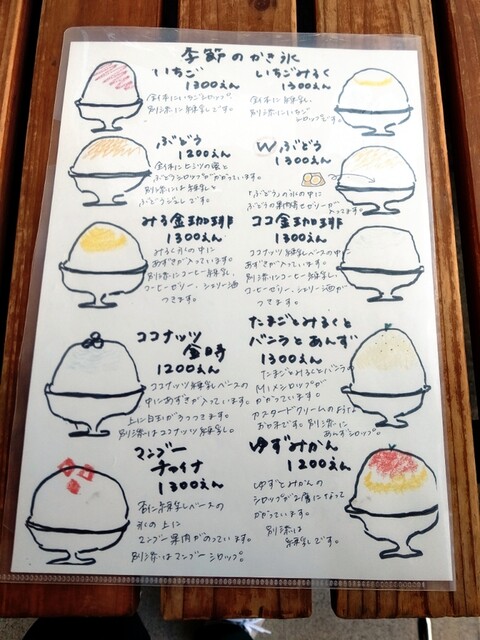 季節のかき氷
いちご
1300えん
氷にいちごシロップ、
別添に練乳です。
いちごみるく
1300えん
氷に練乳、
別添にいちご
シロップです。
ぶどう
1200えん
ぶどうシロップがかかっています。
別添には練乳と
ぶどうジュレです。
Wぶどう
1300えん
「ぶどう」の氷の中に
ぶどうの果肉とゼリーが
入ってます。
みる金珈琲
1300えん
みるく氷の中に
あずきが入っています。
別添にコーヒー練乳、
コーヒーゼリー、シェリー酒
つきます。
ココ金珈琲
1300えん
ココナッツ練乳ベースの中に
あずきが入っています。
別添にコーヒー練乳、
コーヒーゼリー、シェリー酒が
つきます。
ココナッツ
金時
1200えん
ココナッツ練乳ベースの
中にあずきが入って、
上に白玉がのってます。
別添はココナッツ練乳。
たまごとみるくと
バニラとあんず
1300えん
たまごとみるくとバニラの
MIXシロップが
かかっています。
カスタードクリームのような
お味です。別添に
あんずシロップ。
マンゴー
チャイナ
1300えん
杏仁練乳ベースの
氷の上に
マンゴー果肉がのっています。
別添はマンゴーシロップ。
ゆずみかん
1200えん
ゆずとみかんの
シロップが2層になって
かかっています。
別添は
練乳です。